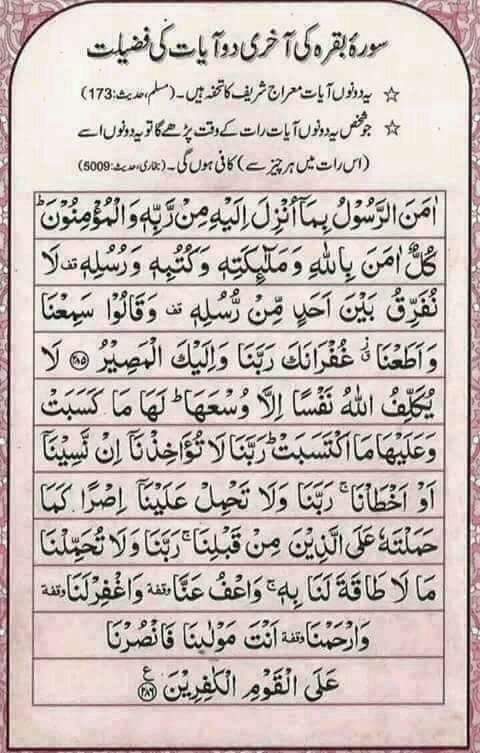 سورۂ بقرہ کی آخری دو آیات کی فضیلت
☆ یہ دونوں آیات معراج شریف کا تحفہ ہیں۔ (مسلم، حدیث: 173)
☆ جو شخص یہ دونوں آیات رات کے وقت پڑھے گا تو یہ دونوں اسے
(اس رات میں ہر چیز سے) کافی ہوں گی۔ (بخاری، حدیث: 5009)
اٰمَنَ الرَّسُوْلُ بِمَاۤ اُنْزِلَ اِلَیْهِ مِنْ رَّبِّهٖ وَ الْمُؤْمِنُوْنَؕ
كُلٌّ اٰمَنَ بِاللّٰهِ وَ مَلٰٓىِٕكَتِهٖ وَ كُتُبِهٖ وَ رُسُلِهٖ قف لَا
نُفَرِّقُ بَیْنَ اَحَدٍ مِّنْ رُّسُلِهٖ قف وَ قَالُوْا سَمِعْنَا
وَ اَطَعْنَا ق٘ غُفْرَانَكَ رَبَّنَا وَ اِلَیْكَ الْمَصِیْرُ ﴿۲۸۵﴾ لَا
یُكَلِّفُ اللّٰهُ نَفْسًا اِلَّا وُسْعَهَاؕ لَهَا مَا كَسَبَتْ
وَ عَلَیْهَا مَا اكْتَسَبَتْؕ رَبَّنَا لَا تُؤَاخِذْنَاۤ اِنْ نَّسِیْنَاۤ
اَوْ اَخْطَاْنَاۚ رَبَّنَا وَ لَا تَحْمِلْ عَلَیْنَاۤ اِصْرًا كَمَا
حَمَلْتَهٗ عَلَى الَّذِیْنَ مِنْ قَبْلِنَاۚ رَبَّنَا وَ لَا تُحَمِّلْنَا
مَا لَا طَاقَةَ لَنَا بِهٖۚ وَ اعْفُ عَنَّا وقفة وَ اغْفِرْ لَنَا وقفة
وَ ارْحَمْنَا وقفة اَنْتَ مَوْلٰىنَا فَانْصُرْنَا
عَلَى الْقَوْمِ الْكٰفِرِیْنَ ﴿۲۸۶﴾ ع